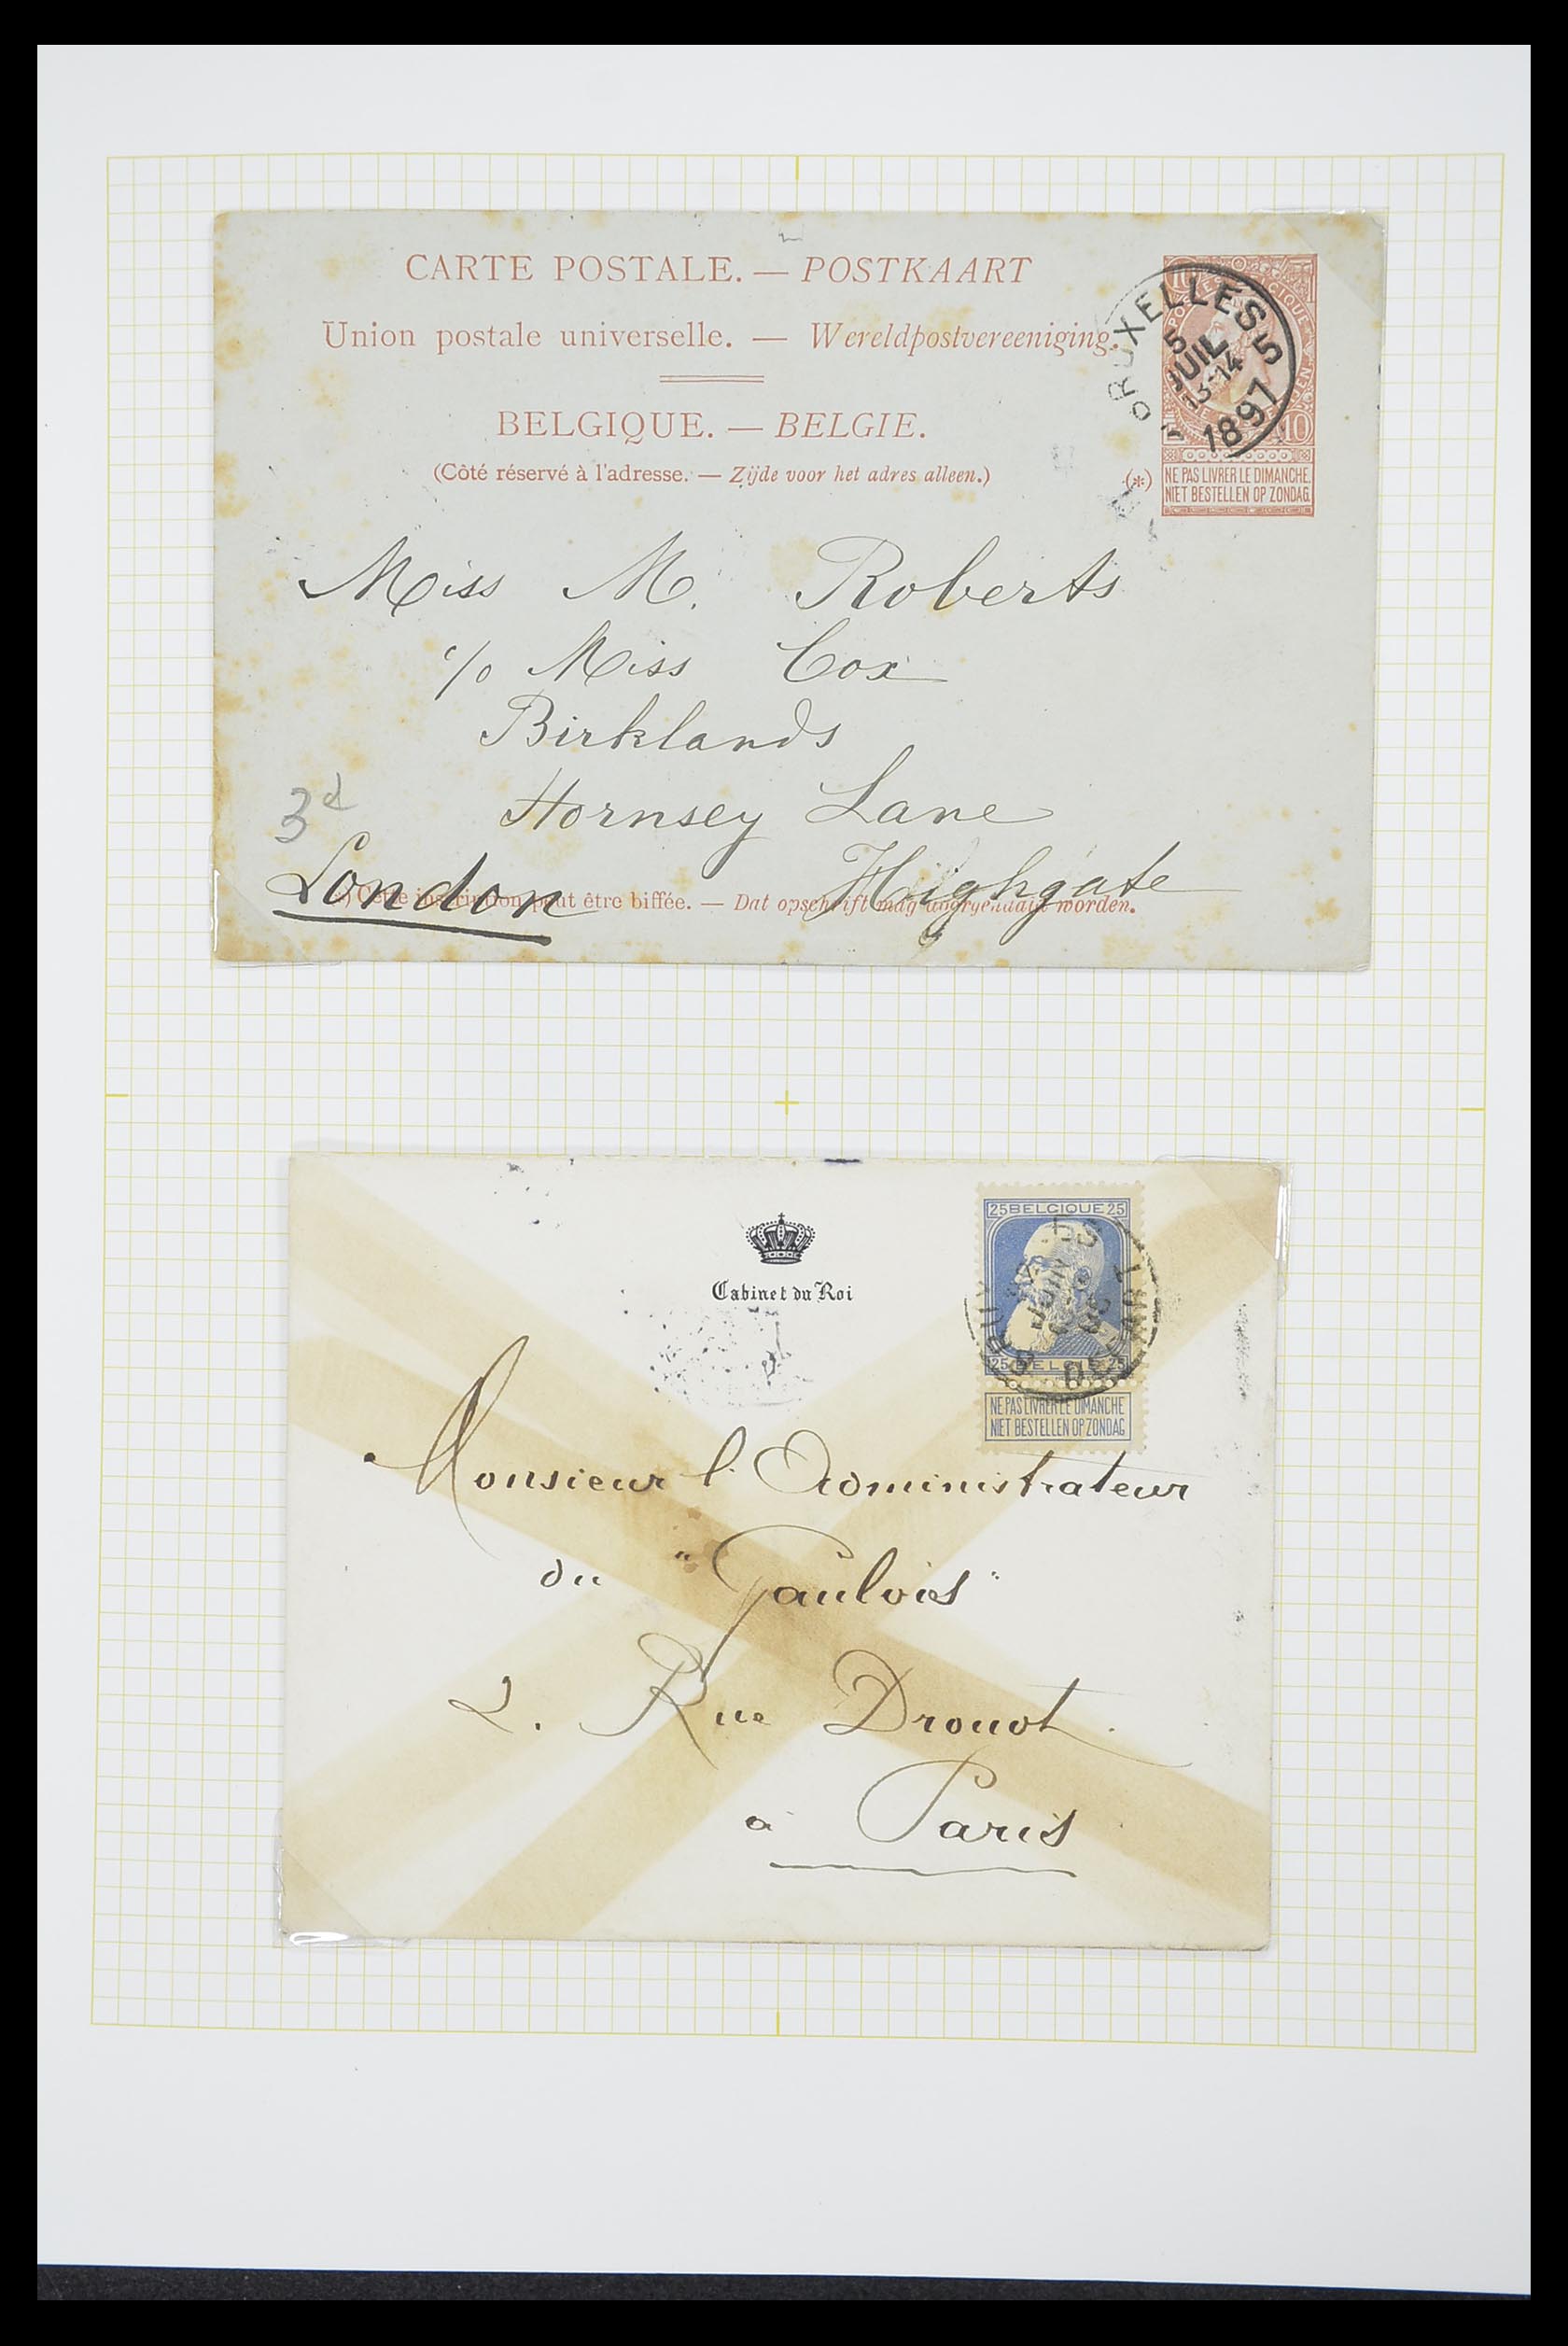 CARTE POSTALE. — POSTKAART
Union postale universelle. — Wereldpostvereeniging.
BELGIQUE. — BELGIE.
(Côté réservé à l'adresse. — Zijde voor het adres alleen.)
BRUXELLES 5
5
JUIL
13-14
1897
10
(*)
NE PAS LIVRER LE DIMANCHE.
NIET BESTELLEN OP ZONDAG.
Miss M. Roberts
c/o Miss Cox
Birklands
Hornsey Lane
Highgate
3d
London
(*) Cette inscription peut être biffée. — Dat opschrift mag doorgehaald worden.
Cabinet du Roi
25 BELGIQUE 25
JUIN
25 BELGIË 25
NE PAS LIVRER LE DIMANCHE
NIET BESTELLEN OP ZONDAG
Monsieur l'Administrateur
du "Gaulois"
2. Rue Drouot.
à Paris